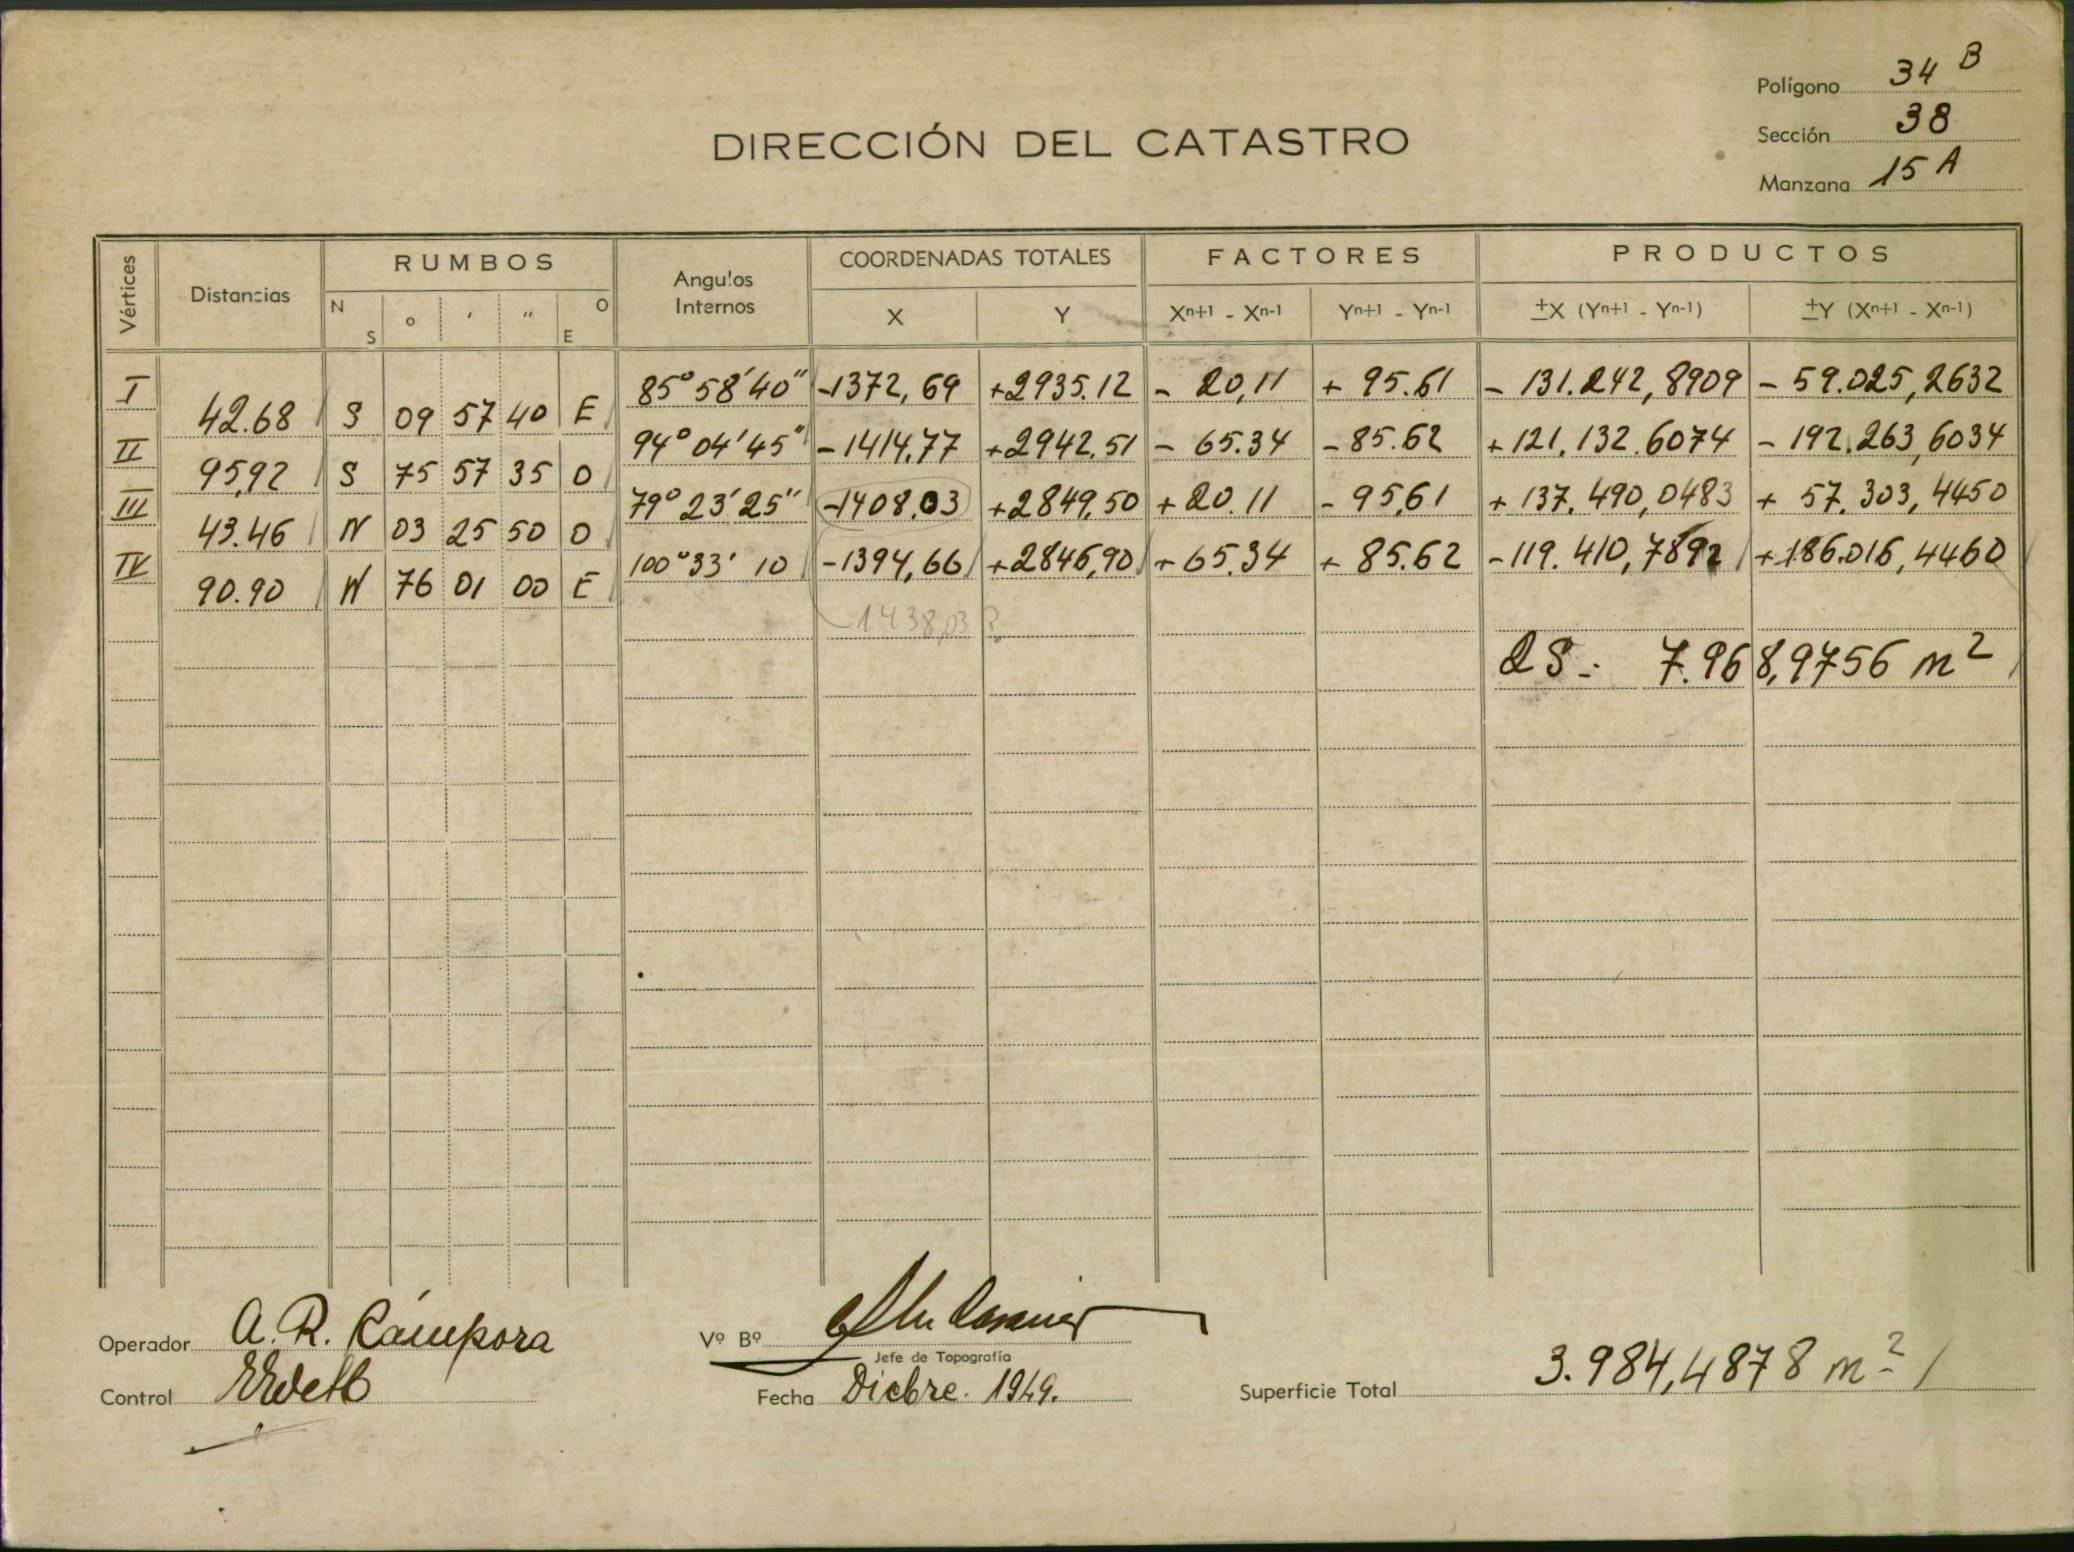 Polígono 34 B
Sección 38
Manzana 15 A
DIRECCIÓN DEL CATASTRO
Vértices Distancias RUMBOS Angulos Internos COORDENADAS TOTALES FACTORES PRODUCTOS
N S ° ' " O E X Y Xn+1 - Xn-1 Yn+1 - Yn-1 ±X (Yn+1 - Yn-1) ±Y (Xn+1 - Xn-1)
I 85° 58' 40" -1372,69 +2935.12 - 20,11 + 95.61 - 131.242,8909 - 59.025,2632
42.68 S 09 57 40 E
II 94° 04' 45" -1414,77 +2942,51 - 65.34 -85.62 +121.132.6074 - 192.263,6034
95,92 S 75 57 35 O
III 79° 23' 25" -1408,03 +2849,50 +20.11 - 95,61 + 137.490,0483 + 57.303,4450
43.46 N 03 25 50 O
IV 100° 33' 10 -1394,66 +2846,90 + 65.34 + 85.62 -119.410,7892 +186.016,4460
90.90 N 76 01 00 E
1438,03 ?
2S = 7.968,9756 m2
Operador A. R. Cámpora
Vº Bº
Jefe de Topografía
Control
Fecha Dicbre. 1949.
Superficie Total 3.984,4878 m2